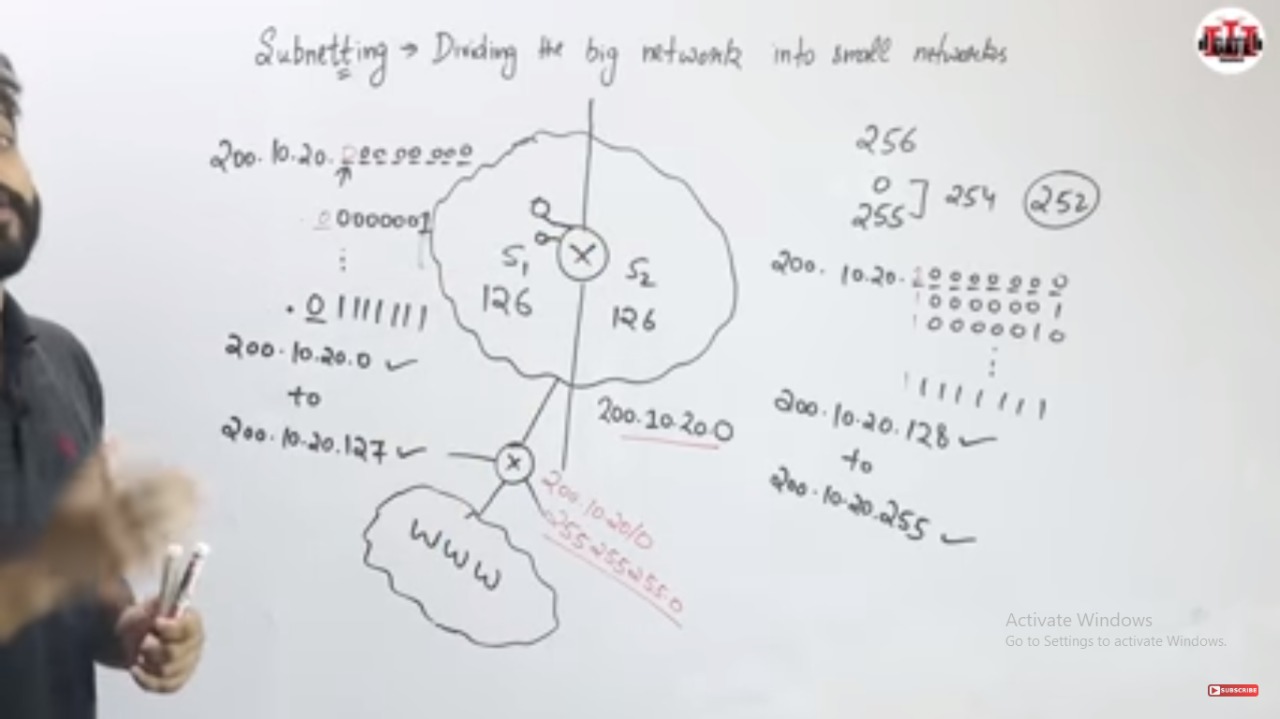 Subnetting → Dividing the big network into small networks
200.10.20.00000000
00000001
⋮
.01111111
200.10.20.0 ✓
to
200.10.20.127 ✓
S1
126
S2
126
200.10.20.0
200.10.20/0
255.255.255.0
WWW
256
0
255 ] 254 252
200.10.20.10000000
10000001
10000010
⋮
11111111
200.10.20.128 ✓
to
200.10.20.255 ✓
Activate Windows
Go to Settings to activate Windows.
SUBSCRIBE